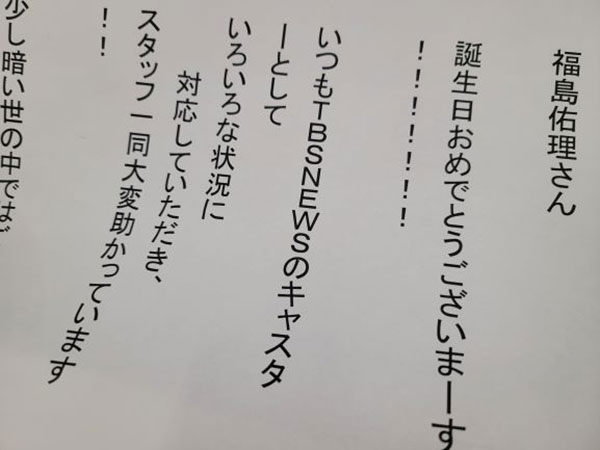 福島佑理さん
誕生日おめでとうございまーす
！！！！！！！
いつもTBSNEWSのキャスタ
ーとして
いろいろな状況に
対応していただき、
スタッフ一同大変助かっています
！！
少し暗い世の中では